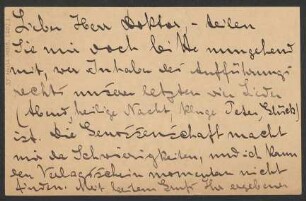 Lieber Herr Doktor, - teilen
Sie mir doch bitte umgehend
mit, wer Inhaber des Aufführungs-
rechts unserer letzten vier Lieder
(Abend, heilige Nacht, kluge Peter, Glück)
ist. Die Genossenschaft macht
mir da Schwierigkeiten, und ich kann
den Verlagsschein momentan nicht
finden. Mit bestem Gruß Ihr ergebener